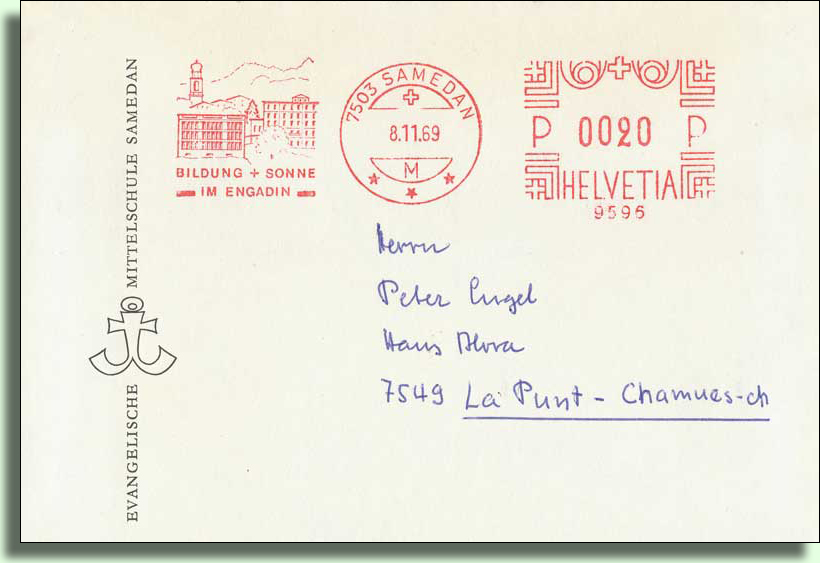 EVANGELISCHE MITTELSCHULE SAMEDAN
BILDUNG + SONNE
IM ENGADIN
7503 SAMEDAN
8.11.69
M
P 0020 P
HELVETIA
9596
Herrn
Peter Engel
Haus Alvra
7549 La Punt - Chamues-ch